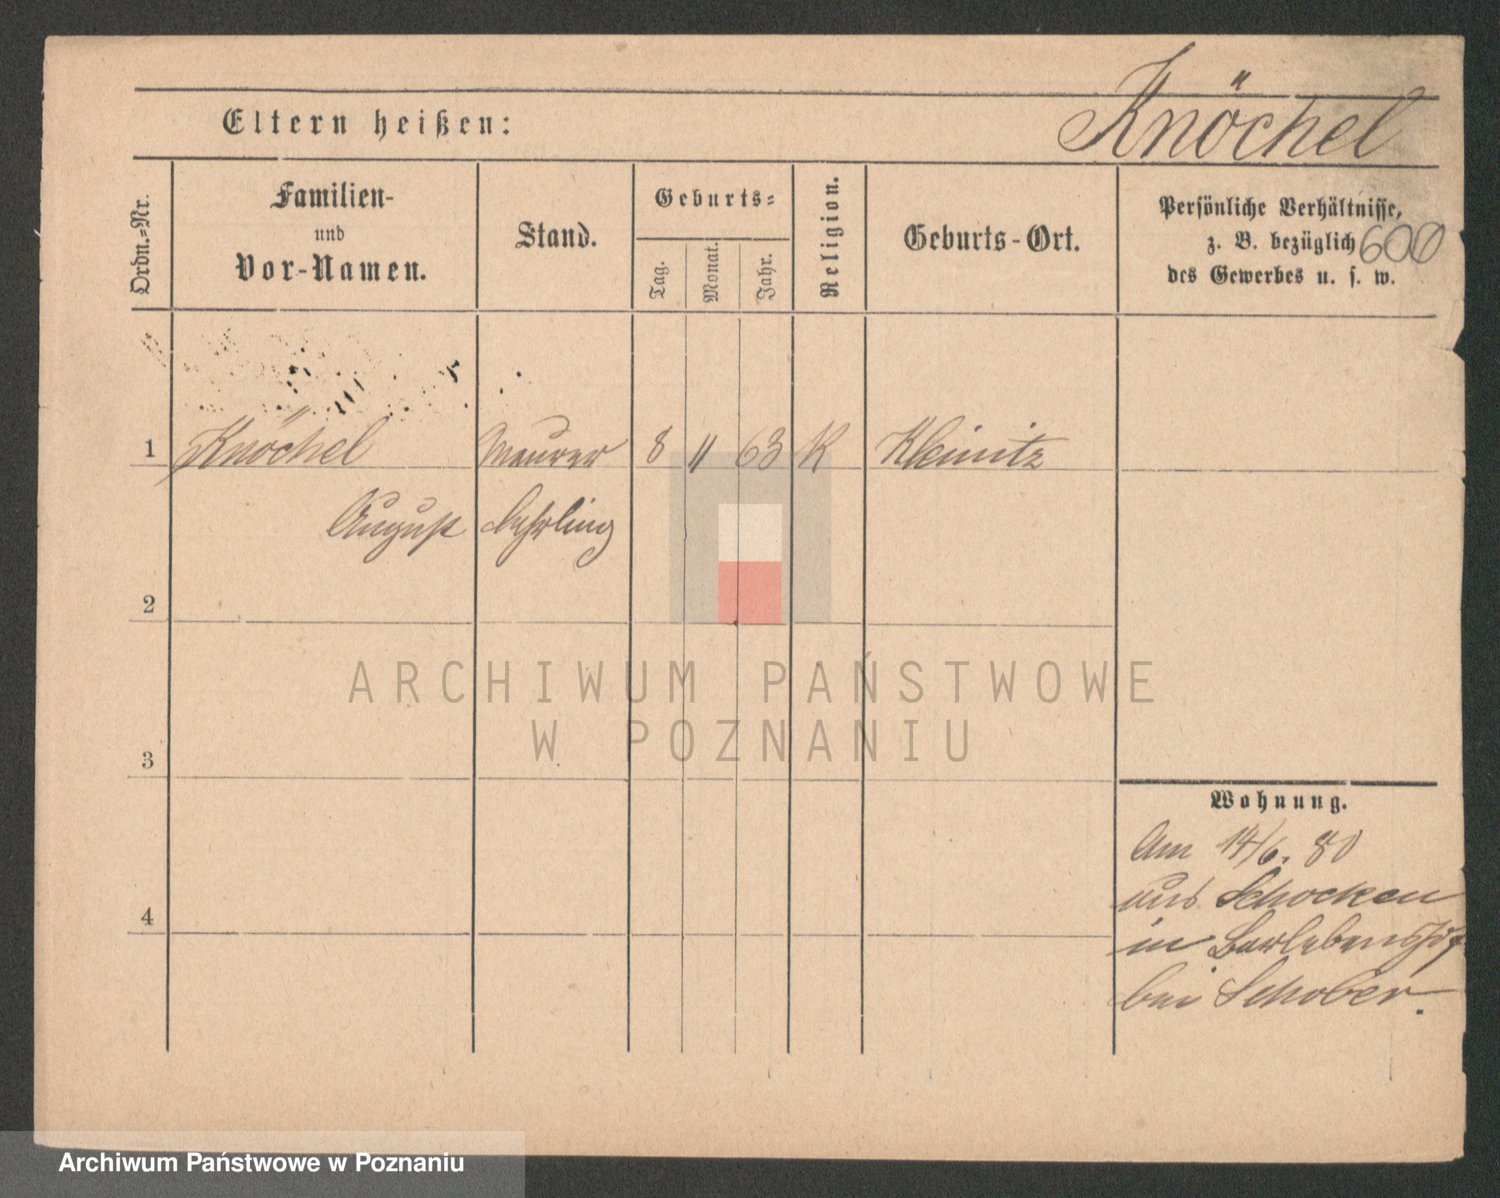 Knöchel
Eltern heißen:
Ordn.-Nr.
Familien-
und
Vor-Namen.
Stand.
Geburts-
Tag.
Monat.
Jahr.
Religion.
Geburts-Ort.
Persönliche Verhältnisse,
z. B. bezüglich
des Gewerbes u. s. w.
600
1 Knöchel Maurer 8 11 63 K Kleinitz
August Lehrling
2
3
4
Wohnung.
Am 14/6. 80
aus Schocken
in Berlebenshof
bei Schober.
ARCHIWUM PAŃSTWOWE
W POZNANIU
Archiwum Państwowe w Poznaniu